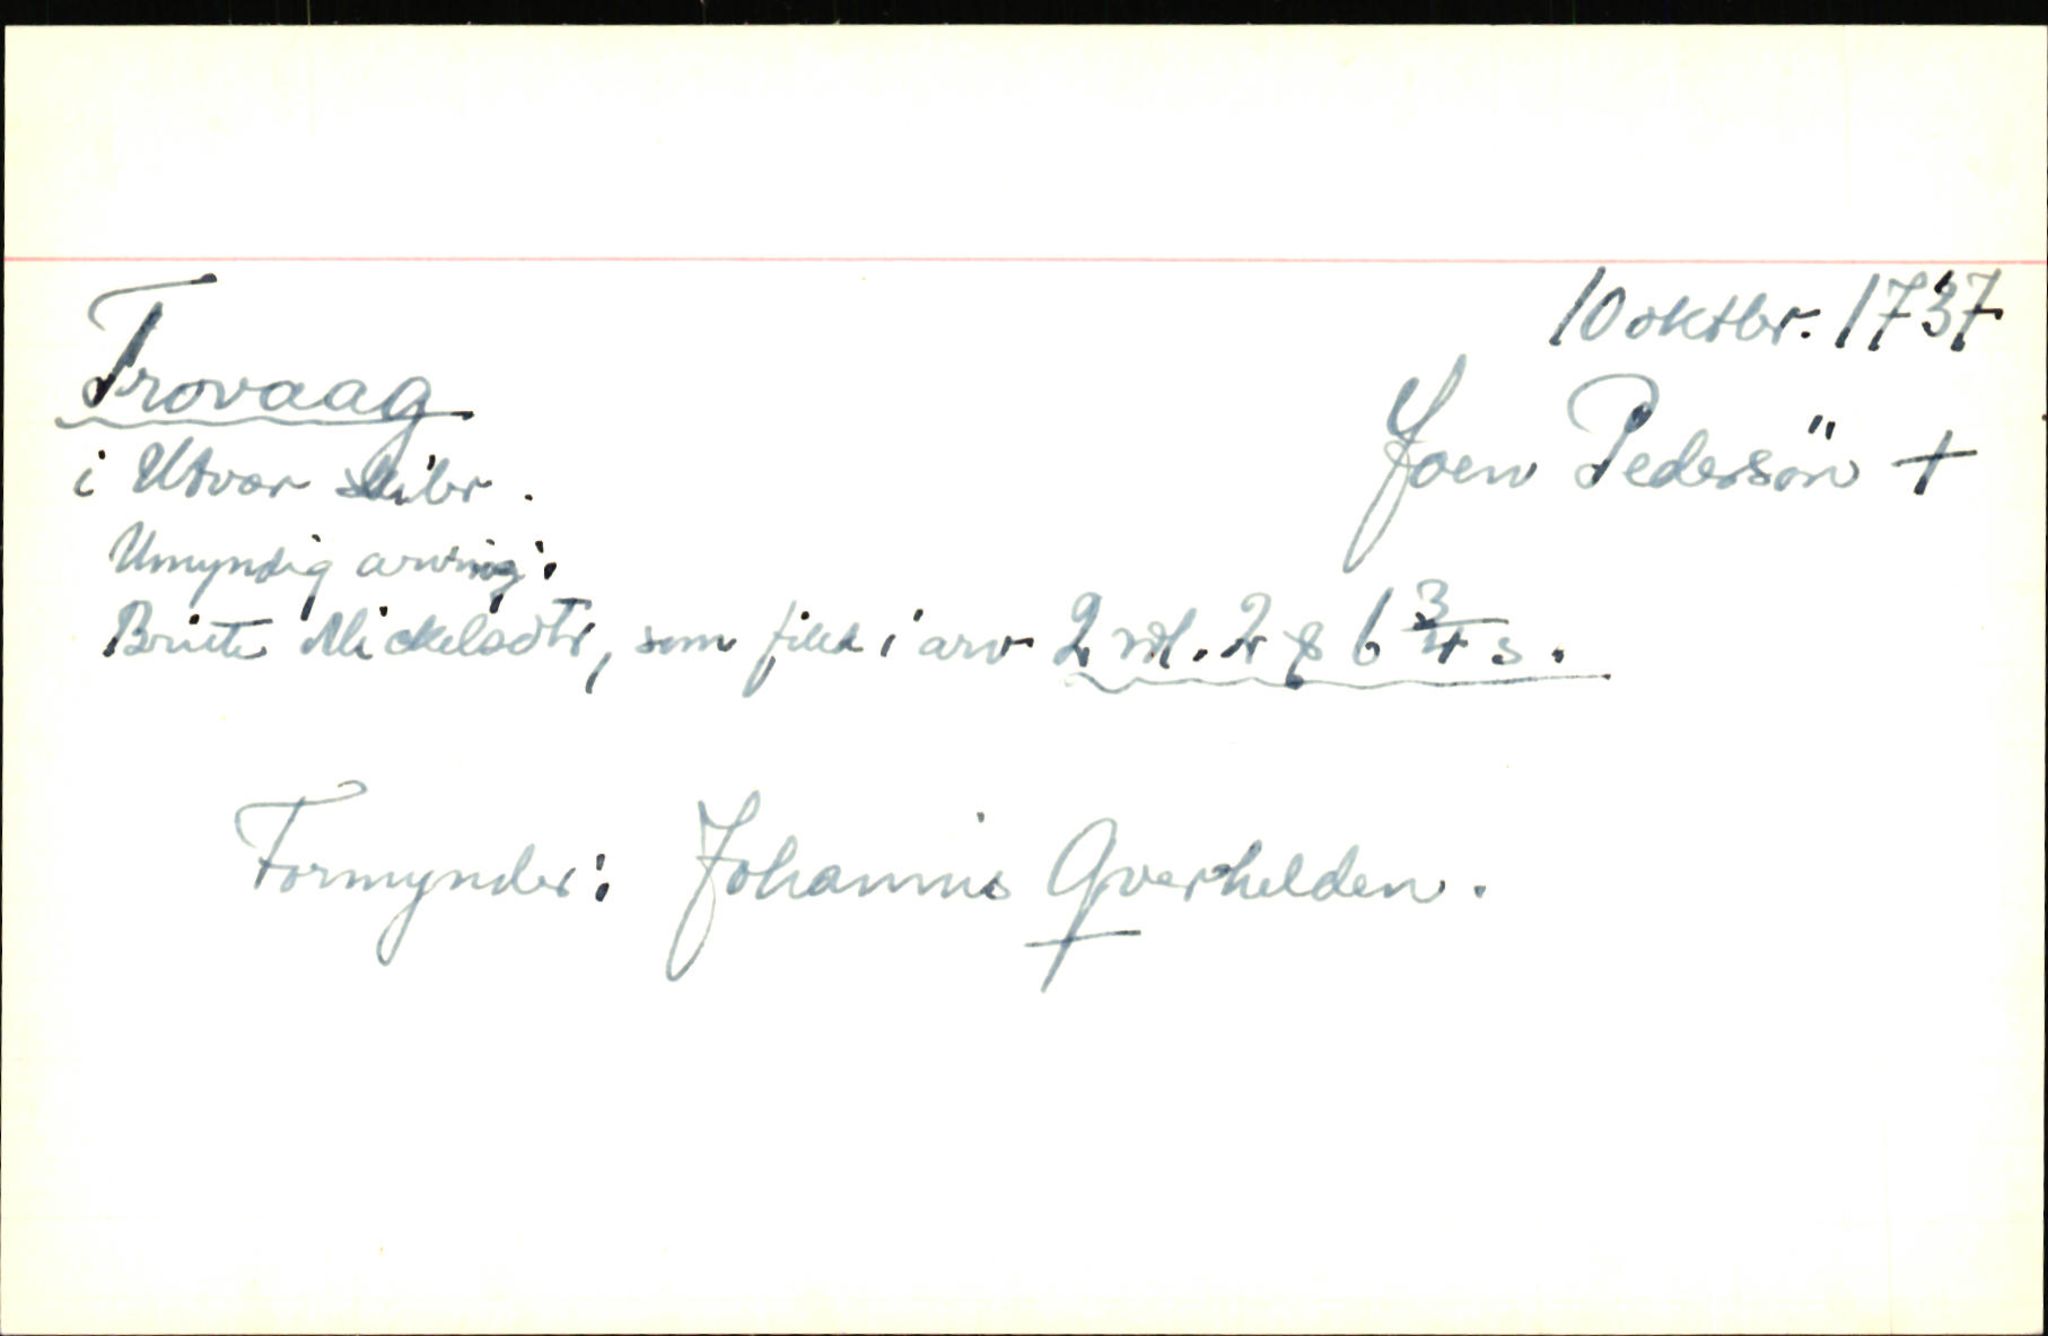 10 oktbr. 1737
Trovaag
Joen Pedersön +
i Utvær skibr.
Umyndig arving:
Britte Mickelsdtr, som fikk i arv 2 rd. 2 ꝧ 6 3/4 s.
Formynder: Johannis Qverhelden.